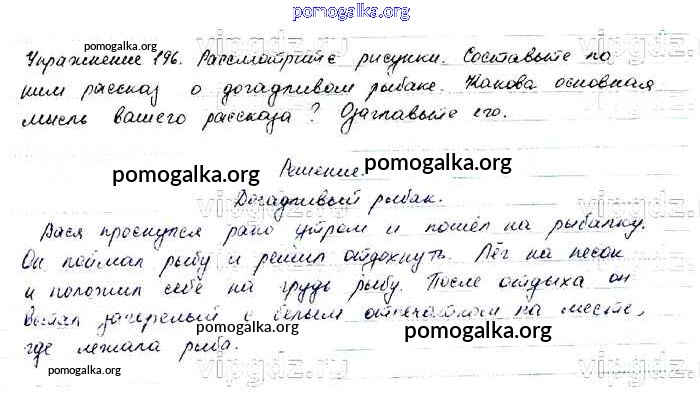 pomogalka.org
pomogalka.org
Упражнение 196. Рассмотрите рисунки. Составьте по
ним рассказ о догадливом рыбаке. Какова основная
мысль вашего рассказа? Озаглавьте его.
vipgdz.ru
Решение.
pomogalka.org
pomogalka.org
Догадливый рыбак.
vipgdz.ru
Вася проснулся рано утром и пошёл на рыбалку.
Он поймал рыбу и решил отдохнуть. Лёг на песок
и положил себе на грудь рыбу. После отдыха он
встал загорелый с белым отпечатком на месте,
pomogalka.org
pomogalka.org
где лежала рыба.
pomogalka.org
vipgdz.ru